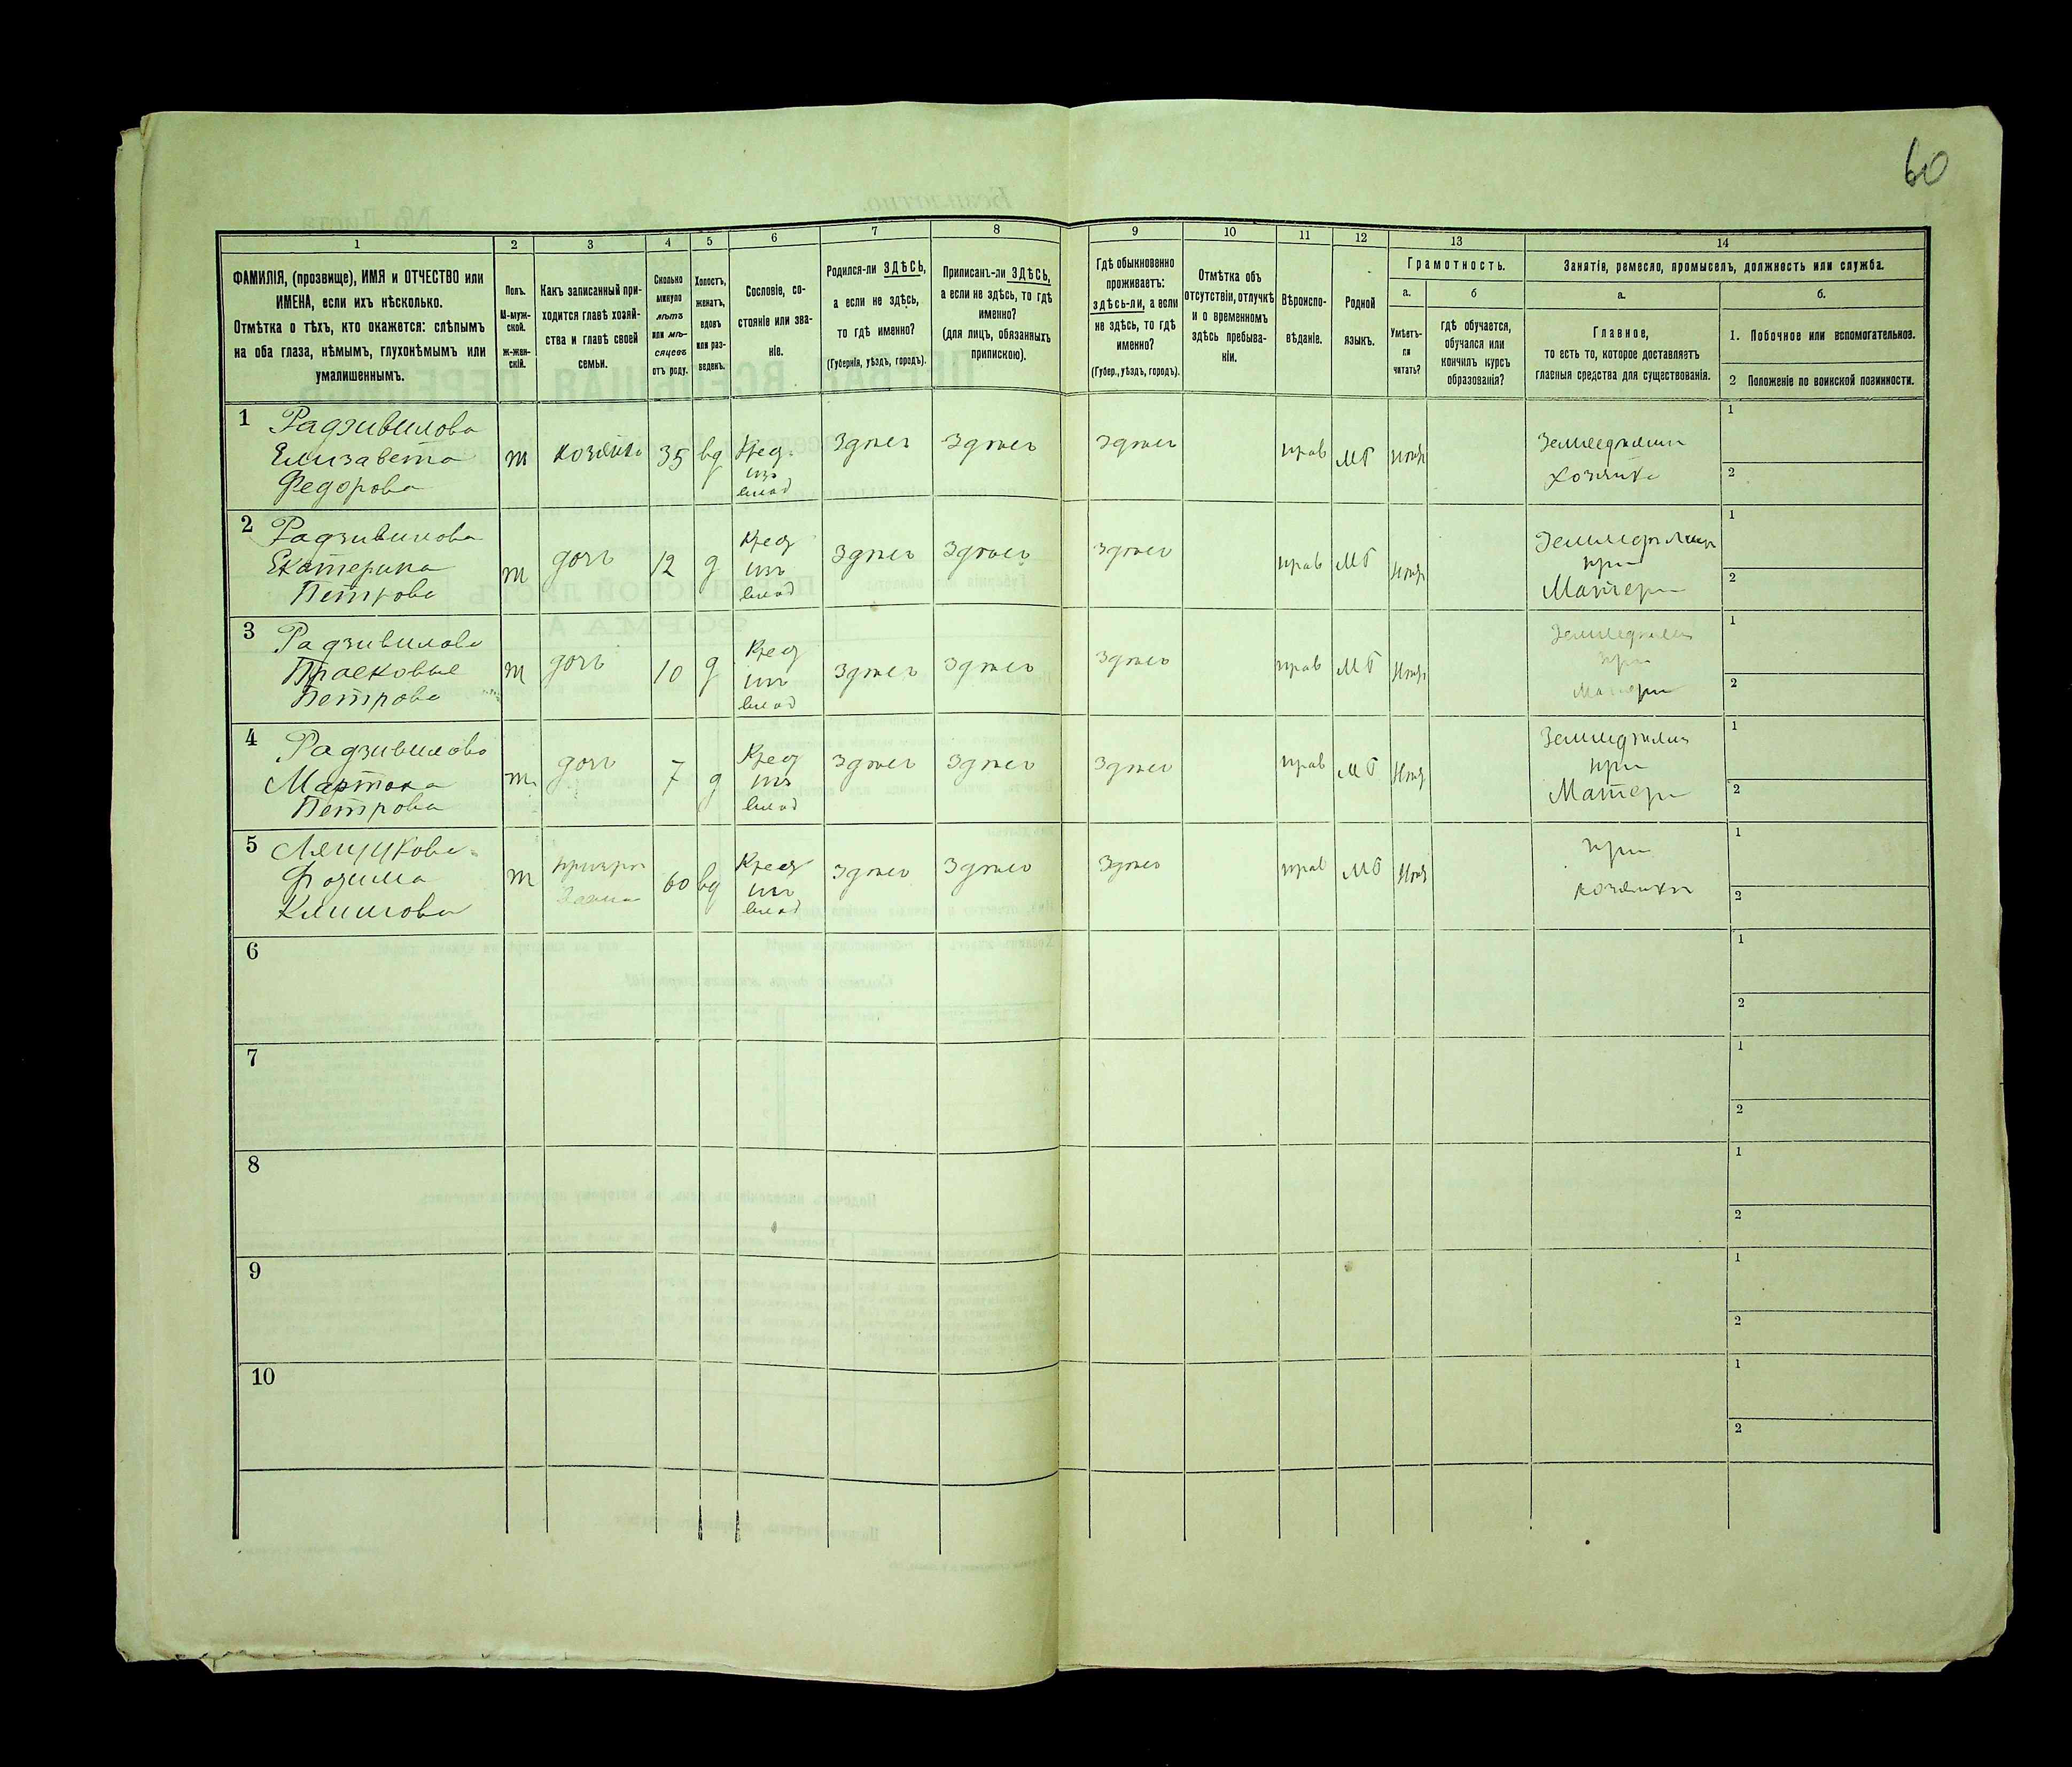 60
1
2
3
4
5
6
7
8
9
10
11
12
13
14
ФАМИЛІЯ, (прозвище), ИМЯ и ОТЧЕСТВО или
ИМЕНА, если ихъ нѣсколько.
Отмѣтка о тѣхъ, кто окажется: слѣпымъ
на оба глаза, нѣмымъ, глухонѣмымъ или
умалишеннымъ.
Полъ.
М-муж-
ской.
Ж-жен-
скій.
Какъ записанный при-
ходится главѣ хозяй-
ства и главѣ своей
семьи.
Сколько
минуло
лѣтъ
или мѣ-
сяцевъ
отъ роду.
Холостъ,
женатъ,
вдовъ
или раз-
веденъ.
Сословіе, со-
стояніе или зва-
ніе.
Родился-ли ЗДѢСЬ,
а если не здѣсь,
то гдѣ именно?
(Губернія, уѣздъ, городъ).
Приписанъ-ли ЗДѢСЬ,
а если не здѣсь, то гдѣ
именно?
(для лицъ, обязанныхъ
припискою).
Гдѣ обыкновенно
проживаетъ:
здѣсь-ли, а если
не здѣсь, то гдѣ
именно?
(Губер., уѣздъ, городъ).
Отмѣтка объ
отсутствіи, отлучкѣ
и о временномъ
здѣсь пребыва-
ніи.
Вѣроиспо-
вѣданіе.
Родной
языкъ.
Грамотность.
а.
Умѣетъ-
ли
читать?
б
гдѣ обучается,
обучался или
кончилъ курсъ
образованія?
Занятіе, ремесло, промыселъ, должность или служба.
а.
Главное,
то есть то, которое доставляетъ
главныя средства для существованія.
б.
1. Побочное или вспомогательное.
2 Положеніе по воинской повинности.
1
Радзивилова
Елизавета
Федорова
хозяйка
35
вд
Крес.
изъ
влад
здѣсь
здѣсь
здѣсь
прав
МБ
Земледѣлии
хозяйка
1
2
2
Радзивилова
Екатерина
Петрова
дочь
12
д
Крес
изъ
влад
здѣсь
здѣсь
здѣсь
прав
МБ
при
Матери
1
2
3
Радзивилова
Петрова
дочь
10
д
Крес
изъ
влад
здѣсь
здѣсь
здѣсь
прав
МБ
при
Матери
1
2
4
Радзивилова
Петрова
дочь
7
д
Крес
изъ
влад
здѣсь
здѣсь
здѣсь
прав
МБ
при
Матери
1
2
5
Климова
60
вд
Крес
изъ
влад
здѣсь
здѣсь
здѣсь
прав
МБ
при
хозяйкѣ
1
2
6
1
2
7
1
2
8
1
2
9
1
2
10
1
2